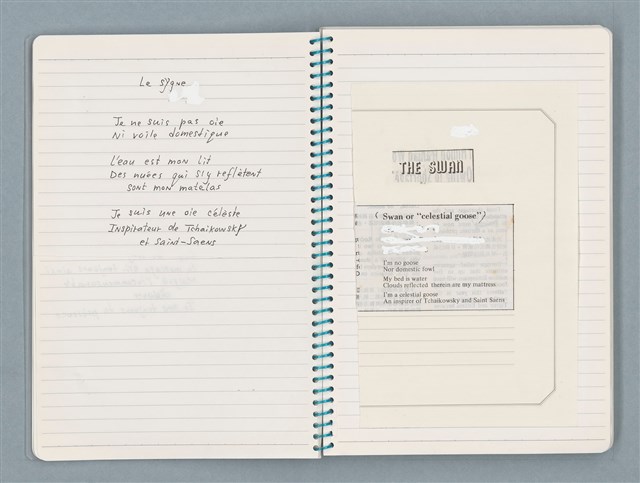 Le sygne
Je ne suis pas oie
Ni voile domestique
L'eau est mon lit
Des nuées qui s'y reflètent
sont mon matelas
Je suis une oie céleste
Inspirateur de Tchaikowsky
et Saint-Saens
THE SWAN
( Swan or "celestial goose" )
I'm no goose
Nor domestic fowl
My bed is water
Clouds reflected thereon are my mattress
I'm a celestial goose
An inspirer of Tchaikowsky and Saint Saens